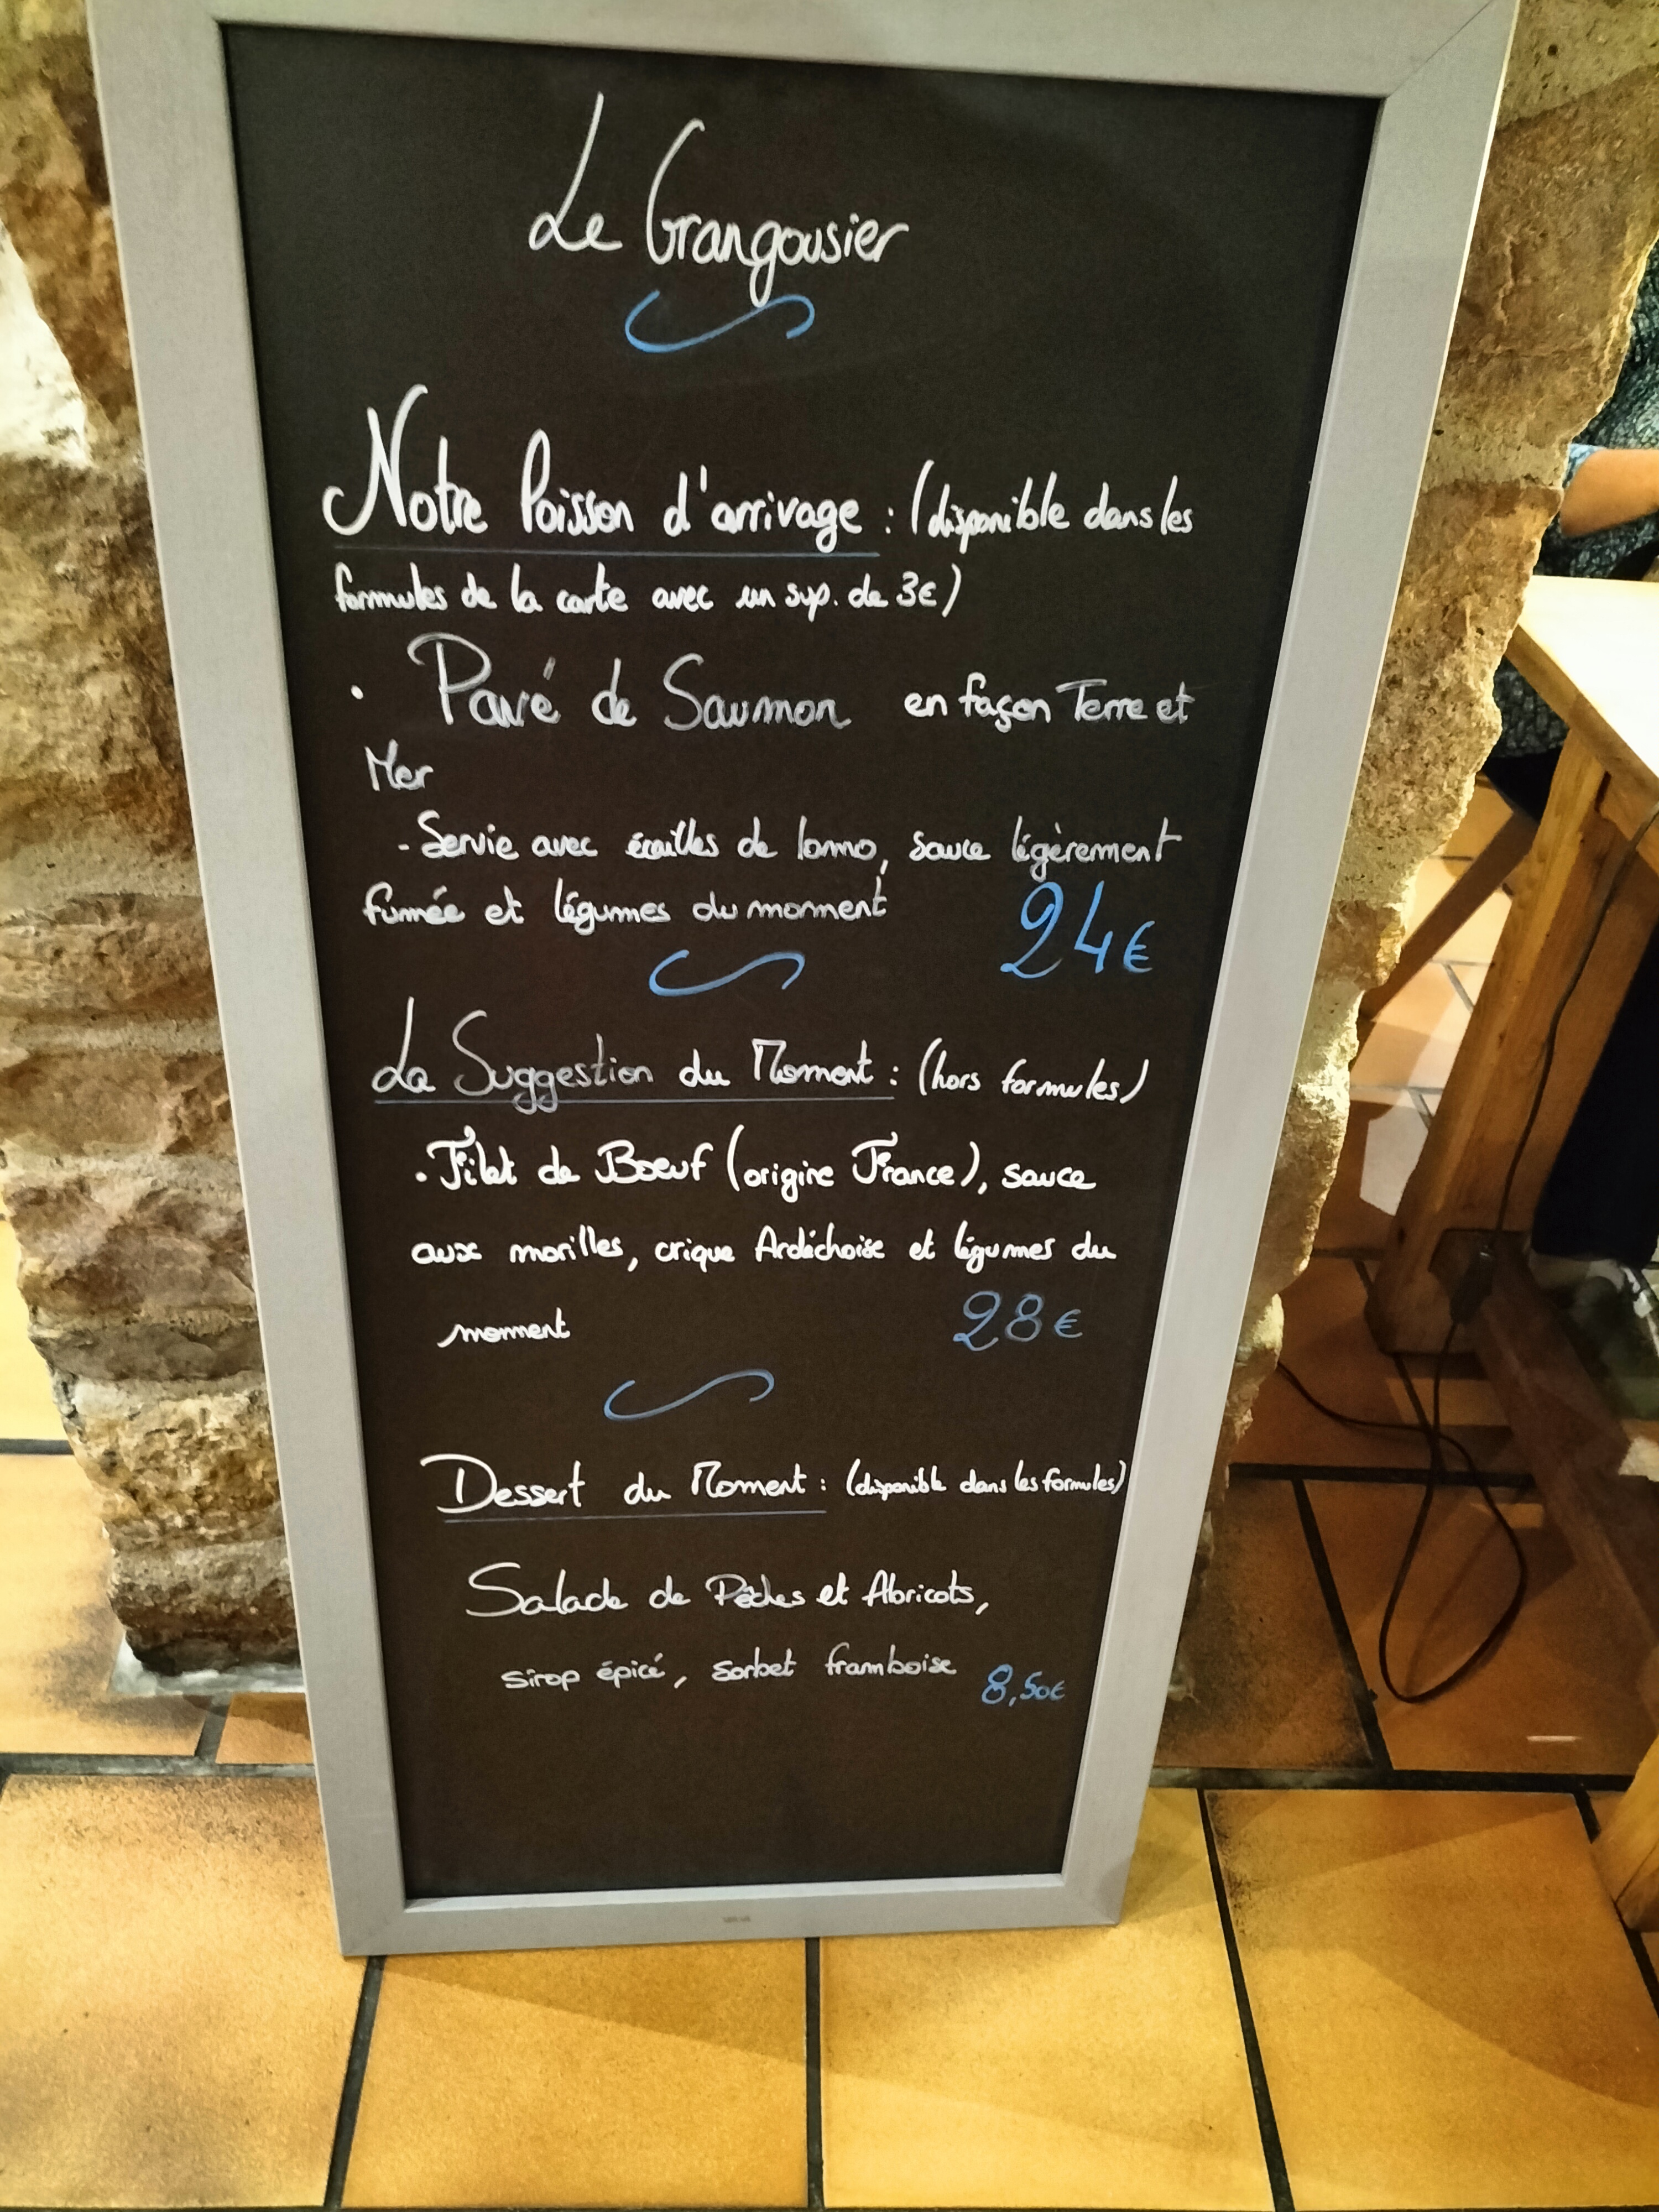 Le Grangousier
Notre Poisson d'arrivage : (disponible dans les
formules de la carte avec un sup. de 3€)
• Pavé de Saumon en façon Terre et
Mer
- Servie avec écailles de lomo, sauce légèrement
fumée et légumes du moment
24€
La Suggestion du Moment : (hors formules)
• Filet de Boeuf (origine France), sauce
aux morilles, crique Ardéchoise et légumes du
moment 28€
Dessert du Moment : (disponible dans les formules)
Salade de Pêches et Abricots,
sirop épicé, sorbet framboise 8,50€